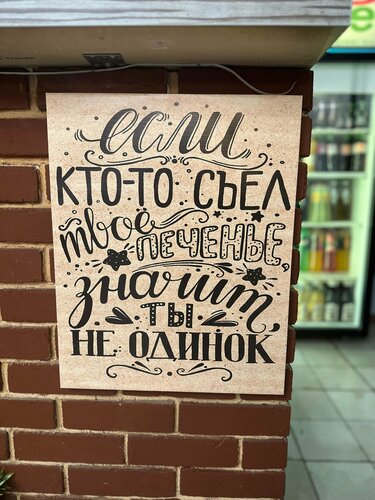 если
КТО-ТО СЪЕЛ
твое
ПЕЧЕНЬЕ,
значит,
ТЫ
НЕ ОДИНОК